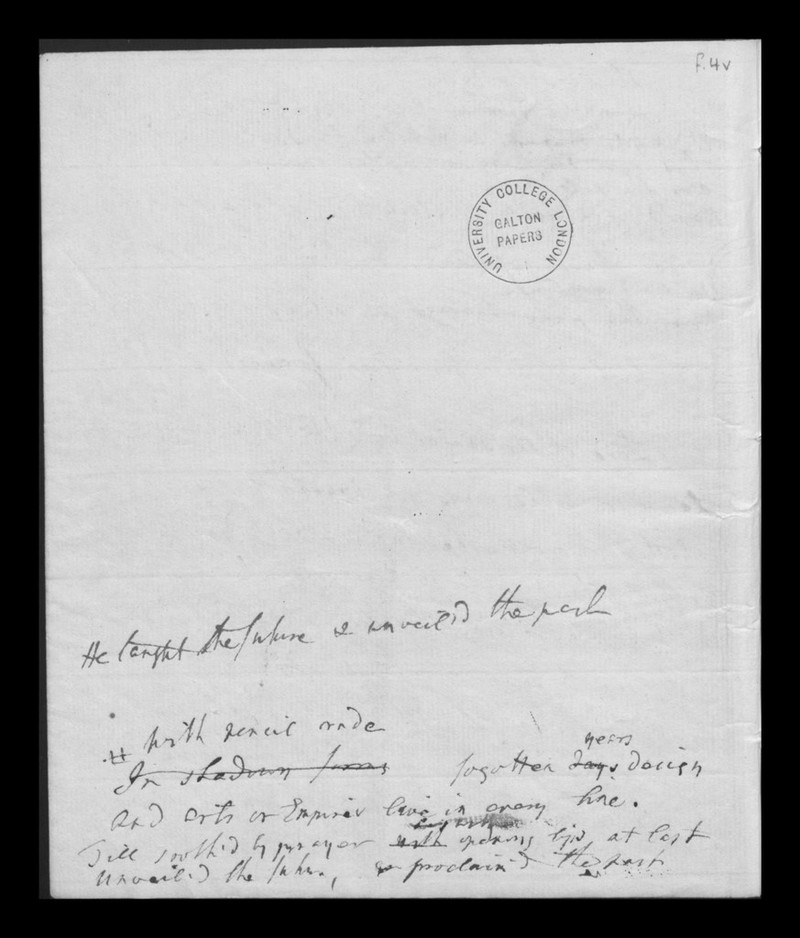 f.4v
UNIVERSITY COLLEGE LONDON
GALTON
PAPERS
He taught the future & unveil'd the past
with pencil rude
years
In shadowy forms forgotten days design
and arts or Empires live in every line.
Till sooth'd by prayer with opening lips at last
Unveil'd the future, or proclaim'd the past